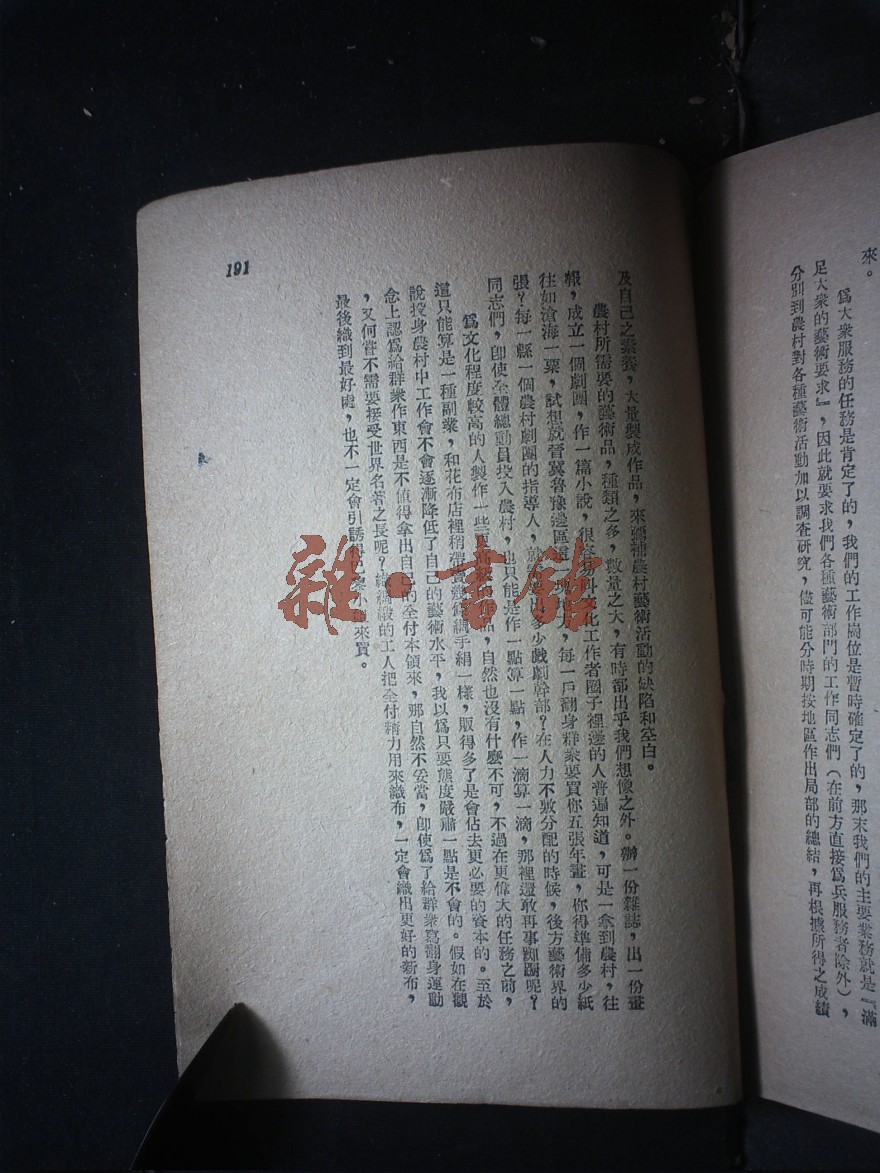 來。
爲大衆服務的任務是肯定了的，我們的工作崗位是暫時確定了的，那末我們的主要業務就是『滿
足大衆的藝術要求』，因此就要求我們各種藝術部門的工作同志們（在前方直接爲兵服務者除外），
分別到農村對各種藝術活動加以調查研究，儘可能分時期按地區作出局部的總結，再根據所得之成績
及自己之素養，大量製成作品，來彌補農村藝術活動的缺陷和空白。
農村所需要的藝術品，種類之多，數量之大，有時都出乎我們想像之外。辦一份雜誌，出一份畫
報，成立一個劇團，作一篇小說，很容易叫文化工作者圈子裡邊的人普遍知道，可是一拿到農村，往
往如滄海一粟，試想就晉冀魯豫邊區這，每一戶翻身群衆要買你五張年畫，你得準備多少紙
張？每一縣一個農村劇團的指導人，就多少戲劇幹部？在人力不敷分配的時候，後方藝術界的
同志們，卽使全體總動員投入農村，也只能是作一點算一點，作一滴算一滴，那裡還敢再事踟躕呢？
爲文化程度較高的人製作一些更高級的作品，自然也沒有什麽不可，不過在更偉大的任務之前，
這只能算是一種副業，和花布店裡稍帶賣幾條綢手絹一樣，販得多了是會佔去更必要的資本的。至於
說投身農村中工作會不會逐漸降低了自己的藝術水平，我以爲只要態度嚴肅一點是不會的。假如在觀
念上認爲給群衆作東西是不值得拿出自己的全付本領來，那自然不妥當，卽使爲了給群衆寫翻身運動
，又何嘗不需要接受世界名著之長呢？織綢緞的工人把全付精力用來織布，一定會織出更好的新布，
最後織到最好處，也不一定會引誘得小來買。
191
雜書館